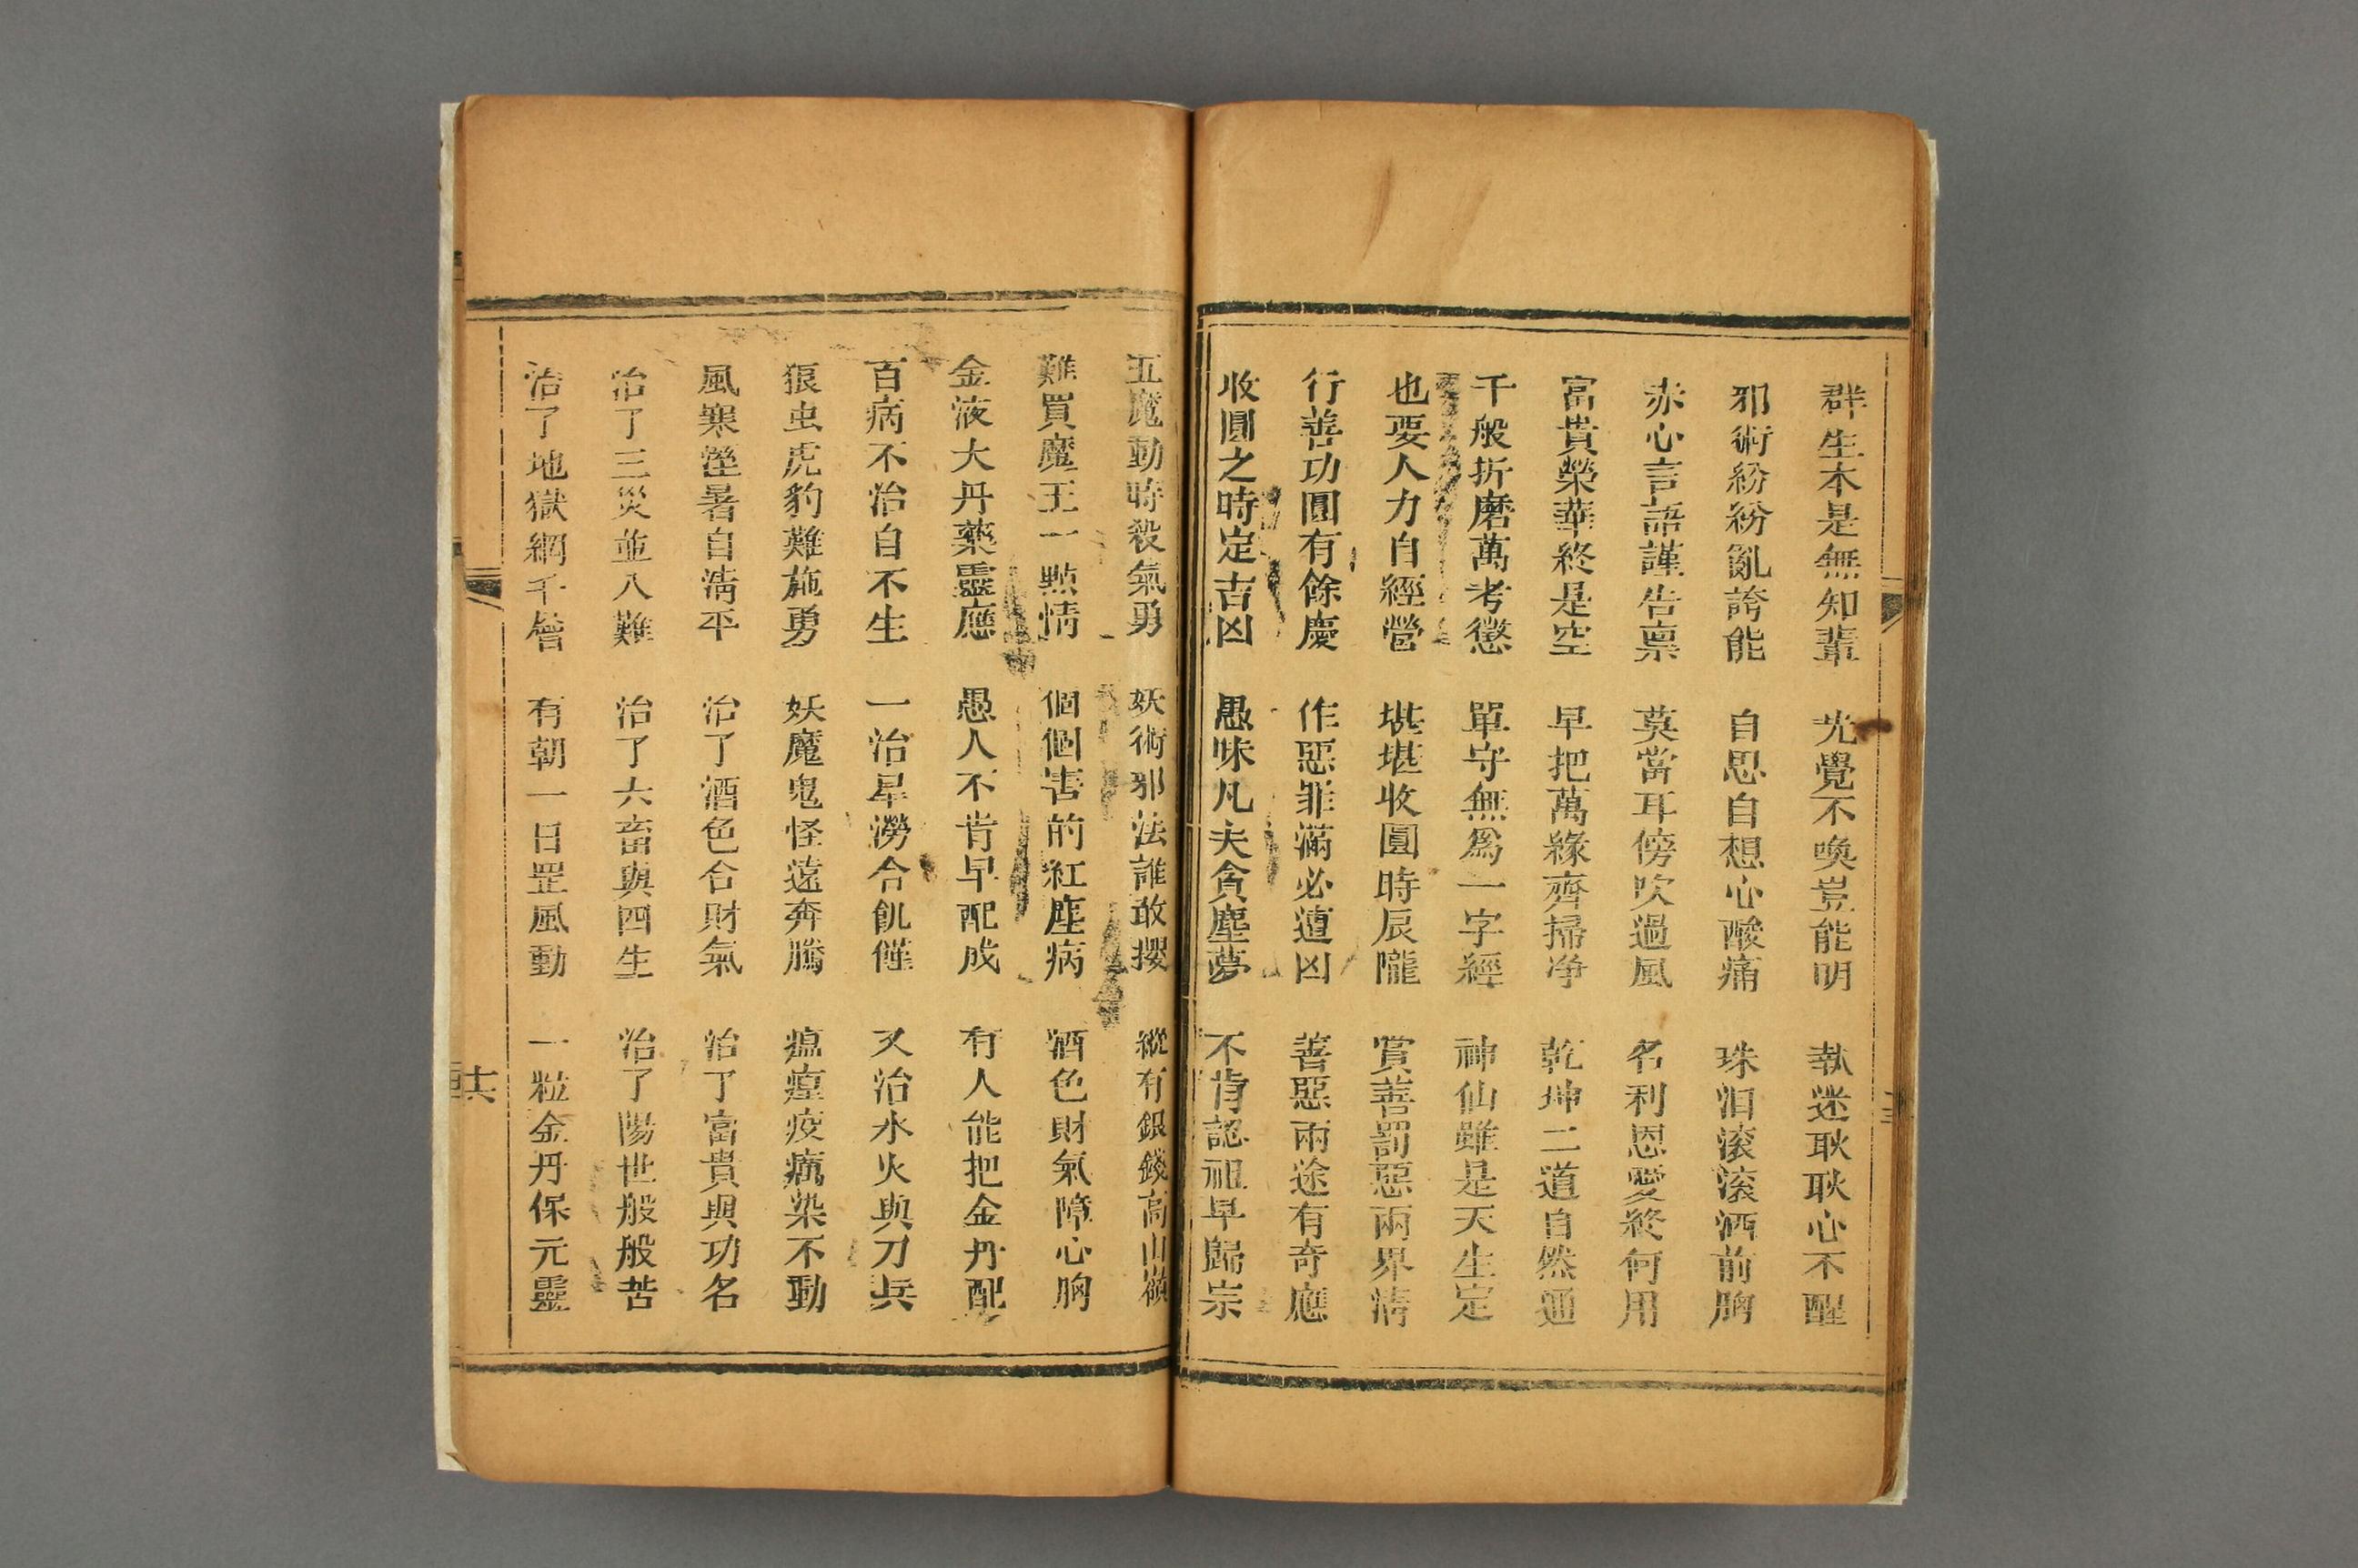 群生本是無知輩 光覺不喚豈能明 執迷耿耿心不醒
邪術紛紛亂誇能 自思自想心酸痛 珠泪滾滾洒前胸
赤心言語謹告禀 莫當耳傍吹過風 名利恩愛終何用
富貴榮華終是空 早把萬緣齊掃净 乾坤二道自然通
千般折磨萬考懲 單守無為一字經 神仙雖是天生定
也要人力自經營 堪堪收圓時辰隴 賞善罰惡兩界清
行善功圓有餘慶 作惡罪滿必遭凶 善惡兩途有奇應
收圓之時定吉凶 愚昧凡夫貪塵夢 不肯認祖早歸宗
五魔動時殺氣勇 妖術邪法誰敢攖 縱有銀錢高山嶺
難買魔王一點情 個個害的紅塵病 酒色財氣障心胸
金液大丹藥靈應 愚人不肯早配成 有人能把金丹配
百病不治自不生 一治旱澇合飢僅 又治水火與刀兵
狼虫虎豹難施勇 妖魔鬼怪遠奔騰 瘟瘴疫癘染不動
風寒溼暑自清平 治了酒色合財氣 治了富貴與功名
治了三災並八難 治了六畜與四生 治了陽世般般苦
治了地獄網千層 有朝一日罡風動 一粒金丹保元靈
十六